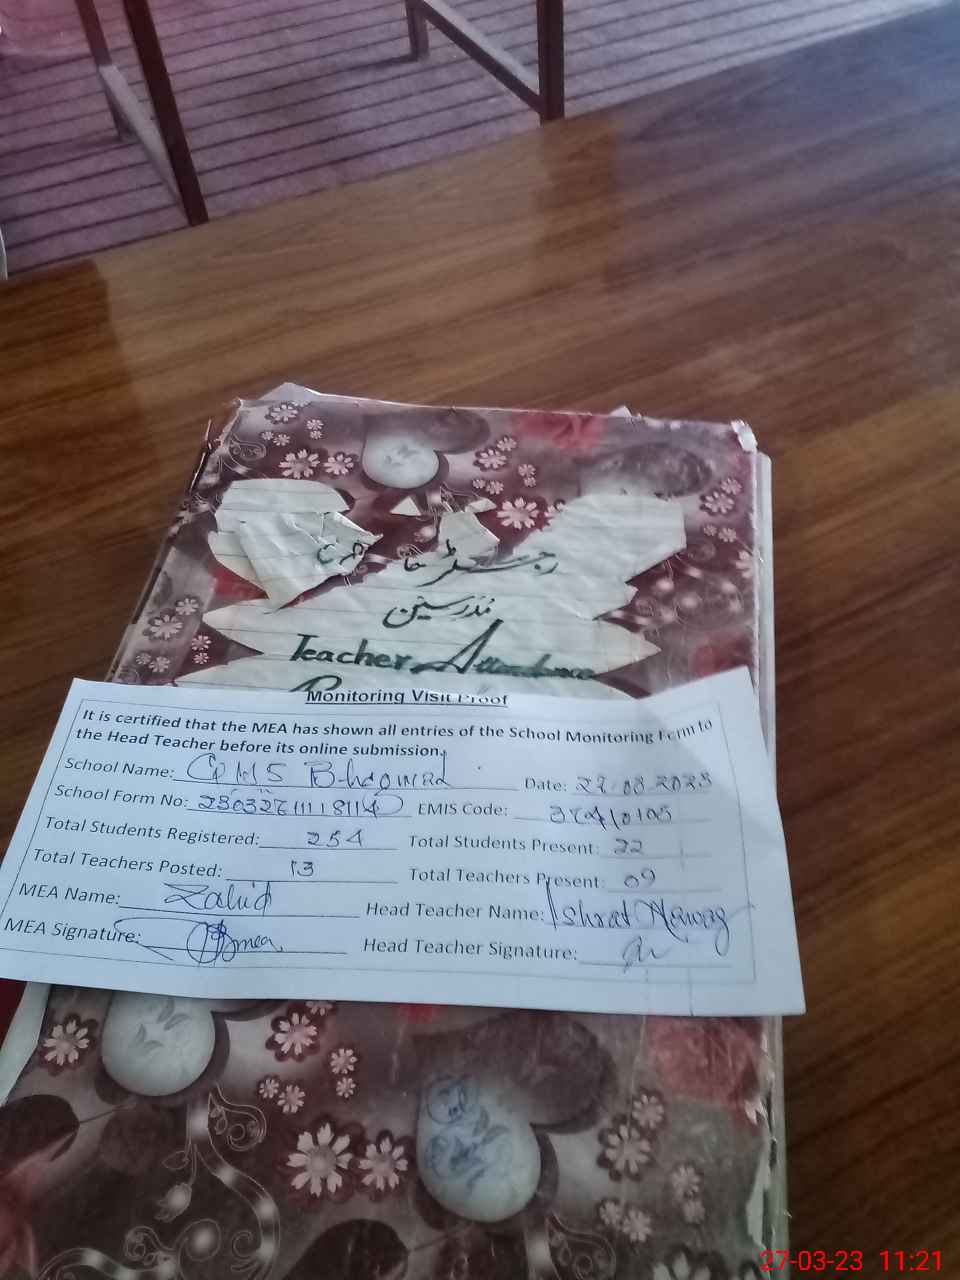 رجسٹر حا
مدرسین
Teacher Attendance
Monitoring Visit Proof
It is certified that the MEA has shown all entries of the School Monitoring Form to
the Head Teacher before its online submission.
School Name: Date:
School Form No: EMIS Code:
Total Students Registered: 254 Total Students Present: 22
Total Teachers Posted: 13 Total Teachers Present: 09
MEA Name: Zahid Head Teacher Name: Ishrat Nawaz
MEA Signature: Head Teacher Signature:
27-03-23 11:21